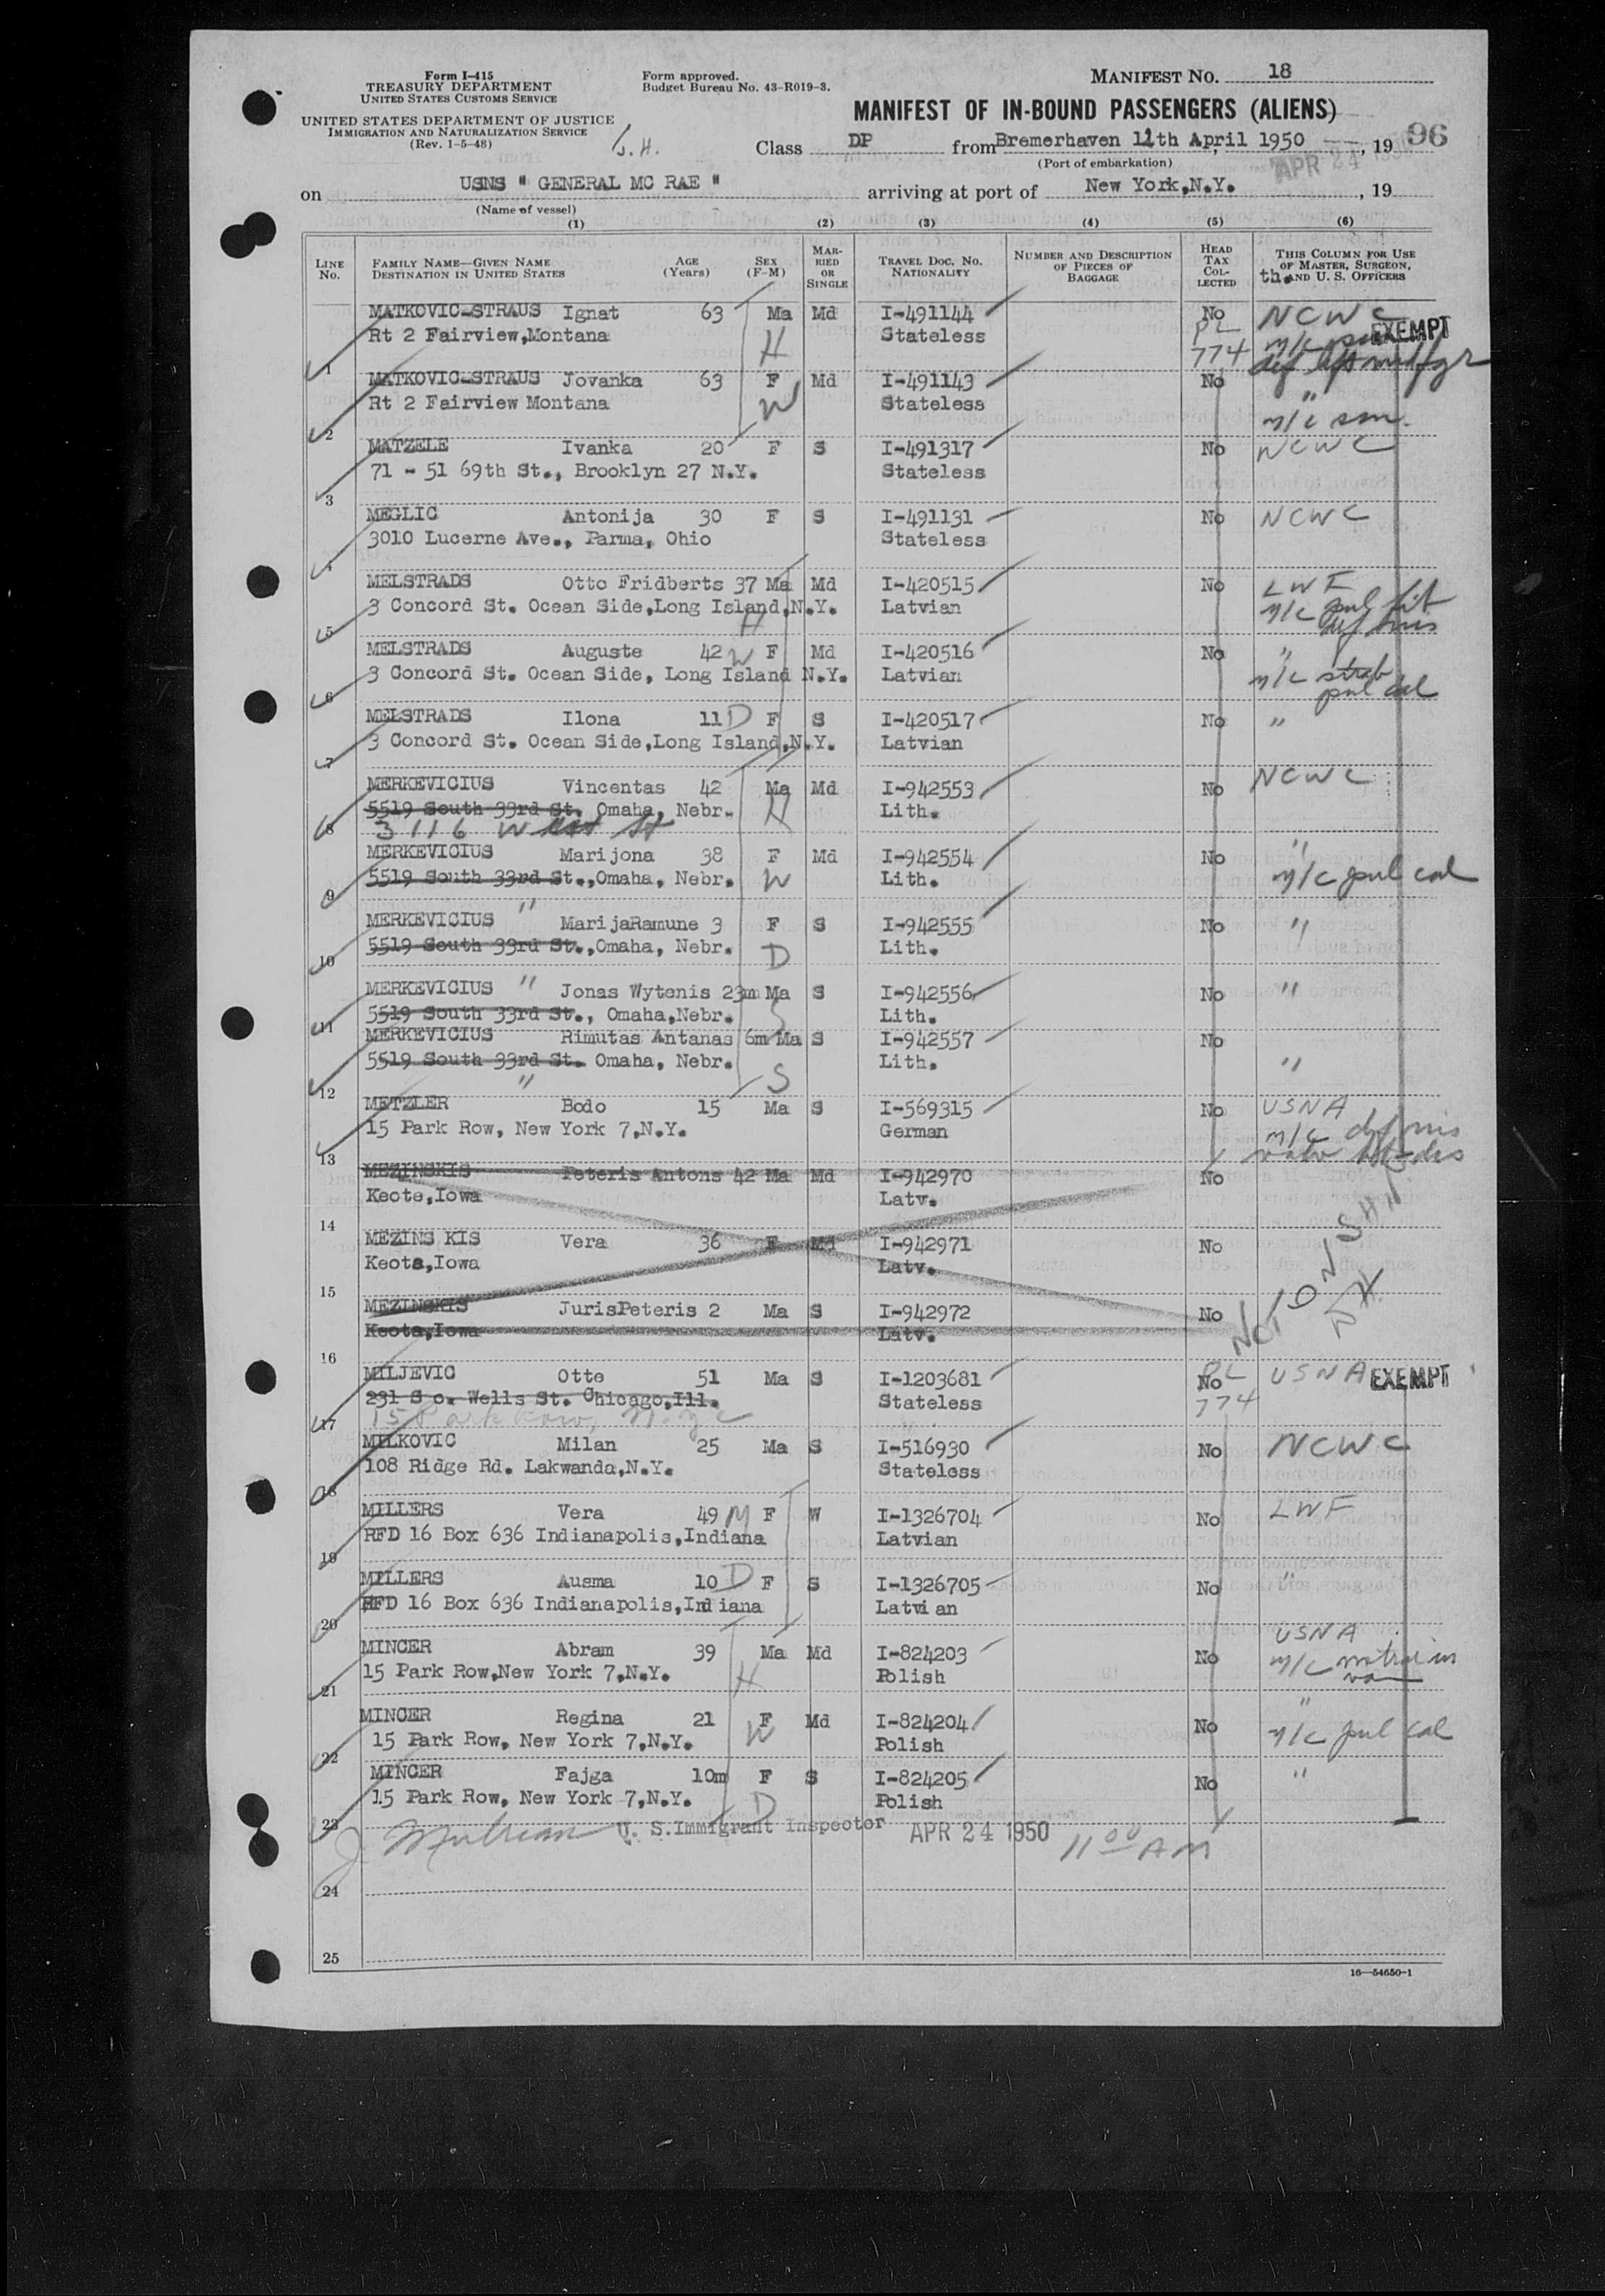 Form I-415
TREASURY DEPARTMENT
UNITED STATES CUSTOMS SERVICE
UNITED STATES DEPARTMENT OF JUSTICE
IMMIGRATION AND NATURALIZATION SERVICE
(Rev. 1-5-48)
Form approved.
Budget Bureau No. 43-R019-3.
MANIFEST No. 18
MANIFEST OF IN-BOUND PASSENGERS (ALIENS)
96
Class DP from Bremerhaven 11th April 1950, 19
(Port of embarkation)
APR 24 1950
on USNS " GENERAL MC RAE " arriving at port of New York,N.Y., 19
(Name of vessel)
(1) (2) (3) (4) (5) (6)
LINE No. FAMILY NAME—GIVEN NAME DESTINATION IN UNITED STATES AGE (Years) SEX (F-M) MARRIED OR SINGLE TRAVEL DOC. No. NATIONALITY NUMBER AND DESCRIPTION OF PIECES OF BAGGAGE HEAD TAX COLLECTED THIS COLUMN FOR USE OF MASTER, SURGEON, AND U. S. OFFICERS
th.
MATKOVIC-STRAUS Ignat 63 Ma Md I-491144 No NCWC
EXEMPT
Rt 2 Fairview,Montana H Stateless PL 774 m/c
1
MATKOVIC-STRAUS Jovanka 63 F Md I-491143 No "
Rt 2 Fairview Montana W Stateless m/c sm.
2
MATZELE Ivanka 20 F S I-491317 No NCWC
71 - 51 69th St., Brooklyn 27 N.Y. Stateless
3
MEGLIC Antonija 30 F S I-491131 No NCWC
3010 Lucerne Ave., Parma, Ohio Stateless
4
MELSTRADS Otto Fridberts 37 Ma Md I-420515 No LWF
3 Concord St. Ocean Side,Long Island,N.Y. Latvian m/c pul
H
5
MELSTRADS Auguste 42 W F Md I-420516 No "
3 Concord St. Ocean Side, Long Island N.Y. Latvian m/c strab
pul cal
6
MELSTRADS Ilona 11 D F S I-420517 No "
3 Concord St. Ocean Side,Long Island,N.Y. Latvian
7
MERKEVICIUS Vincentas 42 Ma Md I-942553 No NCWC
5519 South 33rd St. Omaha, Nebr. H Lith.
8 3116 W St
MERKEVICIUS Marijona 38 F Md I-942554 No "
5519 South 33rd St.,Omaha, Nebr. W Lith. m/c pul cal
9 "
MERKEVICIUS MarijaRamune 3 F S I-942555 No "
5519 South 33rd St.,Omaha, Nebr. D Lith.
10
MERKEVICIUS " Jonas Wytenis 23m Ma S I-942556 No "
5519 South 33rd St., Omaha,Nebr. S Lith.
11
MERKEVICIUS Rimutas Antanas 6m Ma S I-942557 No
5519 South 33rd St. Omaha, Nebr. S Lith. "
12 "
METZLER Bodo 15 Ma S I-569315 No USNA
15 Park Row, New York 7,N.Y. German m/c
13
MEZINSKIS Peteris Antons 42 Ma Md I-942970 No
Keota,Iowa Latv.
14
MEZINS KIS Vera 36 F Md I-942971 No
Keota,Iowa Latv.
15
MEZINSKIS JurisPeteris 2 Ma S I-942972 No
Keota,Iowa Latv.
NOT ON SHIP
16
MILJEVIC Otto 51 Ma S I-1203681 No USNA
EXEMPT
231 S o. Wells St. Chicago,Ill. Stateless PL 774
17 15 Park Row, N.Y.C
MILKOVIC Milan 25 Ma S I-516930 No NCWC
108 Ridge Rd. Lakwanda,N.Y. Stateless
18
MILLERS Vera 49 M F W I-1326704 No LWF
RFD 16 Box 636 Indianapolis,Indiana Latvian
19
MILLERS Ausma 10 D F S I-1326705 No "
RFD 16 Box 636 Indianapolis,Indiana Latvian
20
MINCER Abram 39 Ma Md I-824203 No USNA
15 Park Row,New York 7,N.Y. H Polish m/c
21
MINCER Regina 21 F Md I-824204 No "
15 Park Row, New York 7,N.Y. W Polish m/c pul cal
22
MINCER Fajga 10m F S I-824205 No "
15 Park Row, New York 7,N.Y. D Polish
23
U. S.Immigrant Inspector APR 24 1950 11 00 AM
24
25
16—54650-1